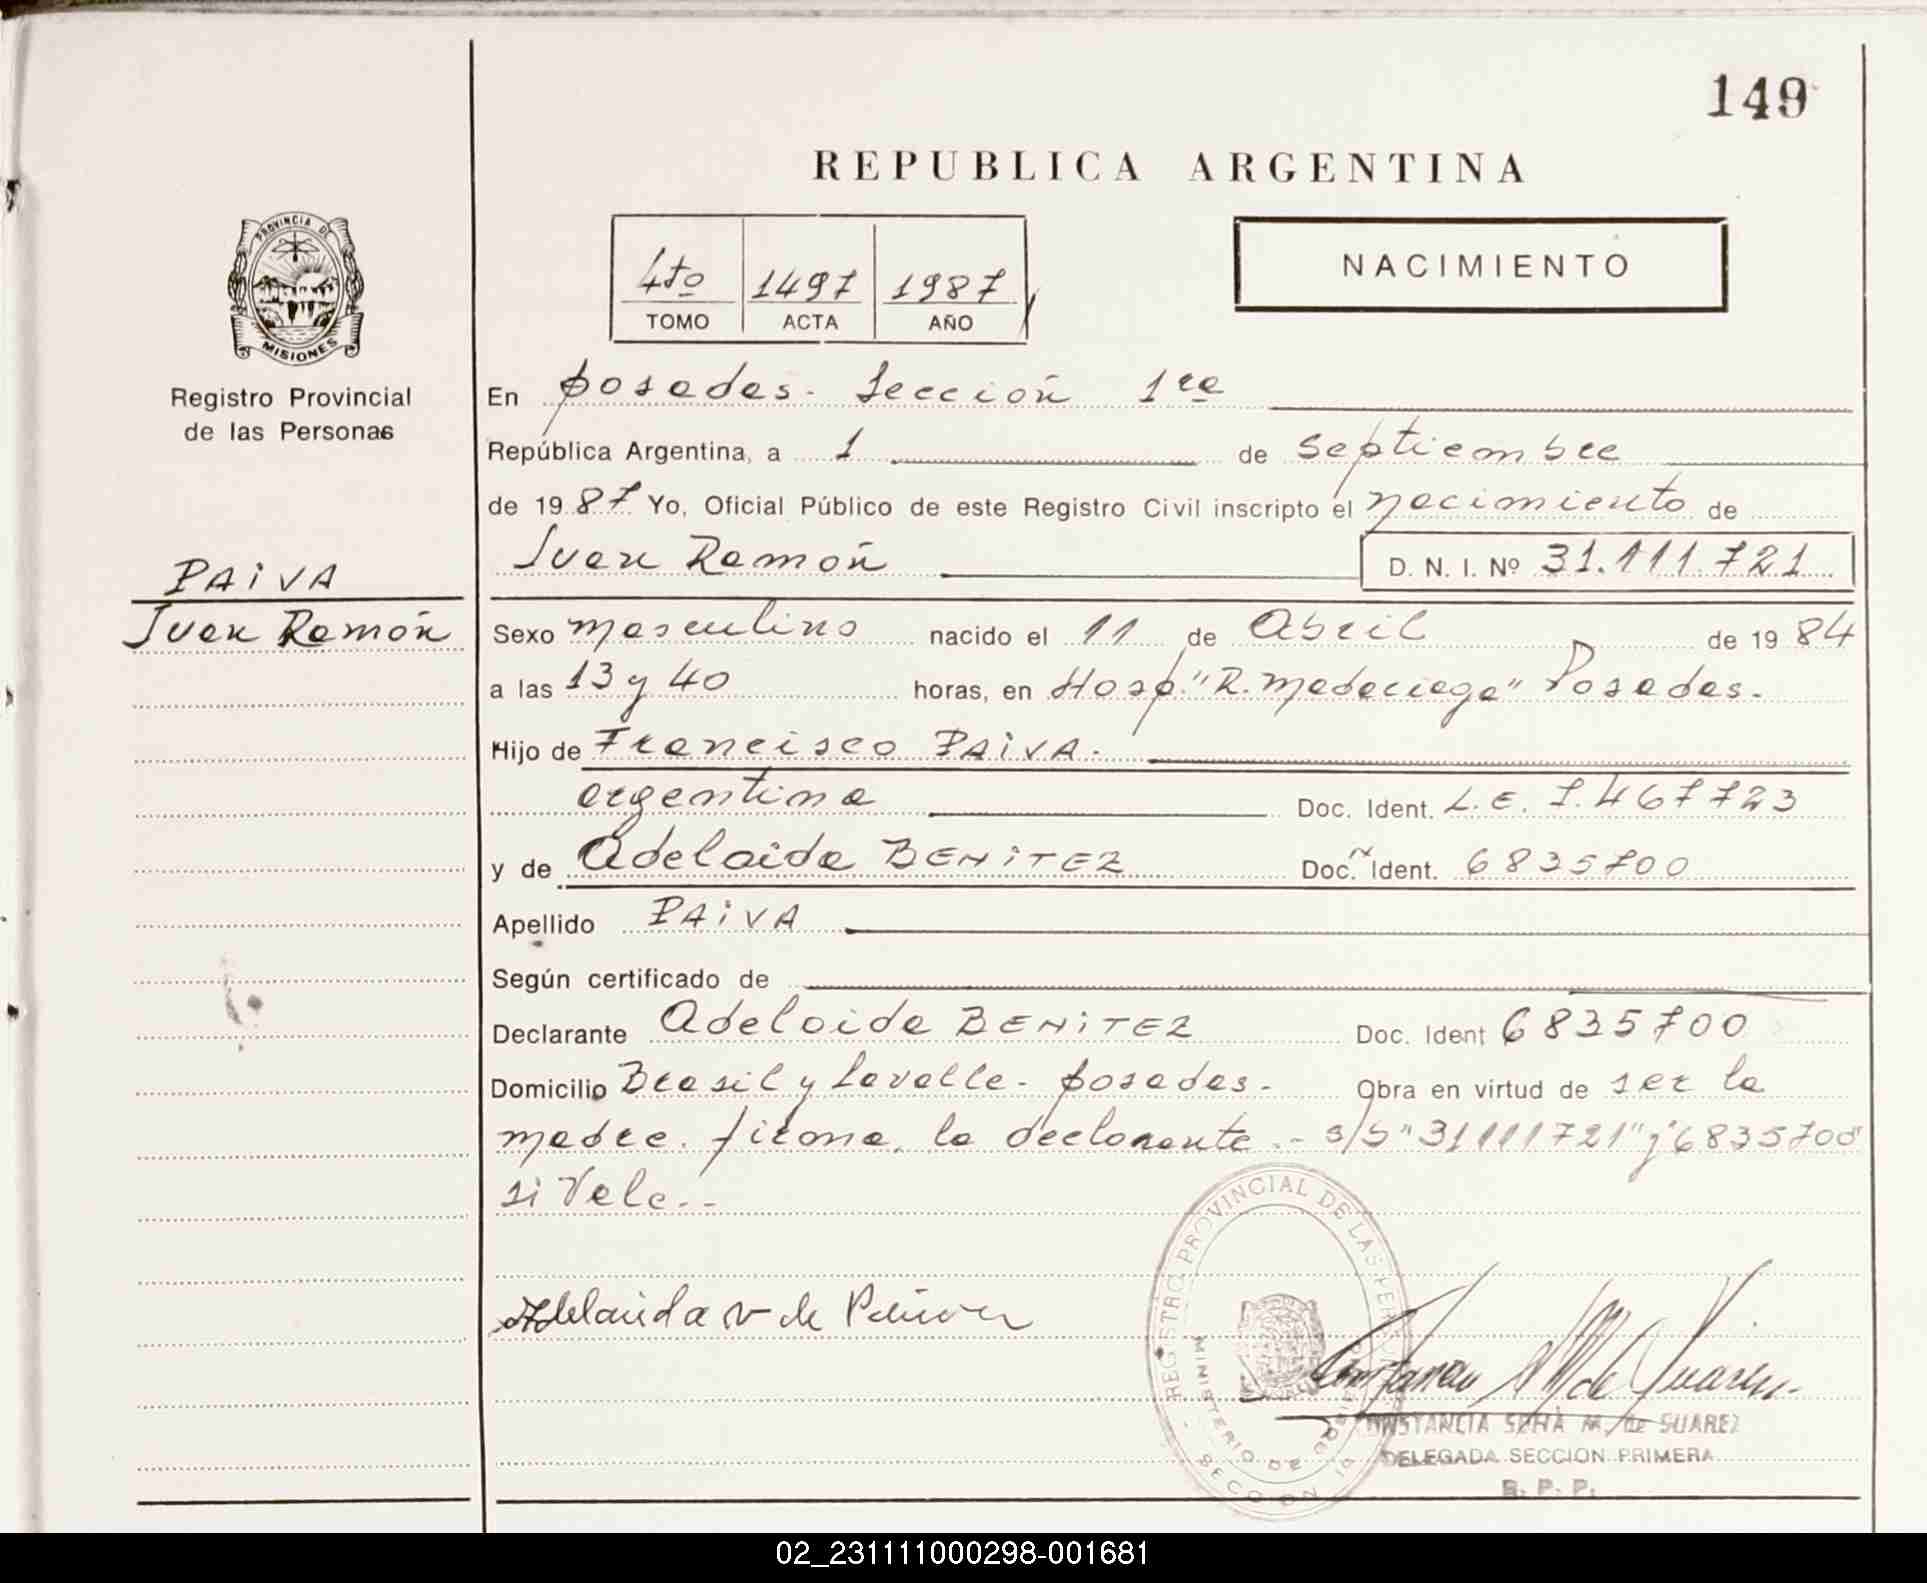 149
REPUBLICA ARGENTINA
PROVINCIA DE
MISIONES
Registro Provincial
de las Personas
4to 1497 1987
TOMO ACTA AÑO
NACIMIENTO
En Posadas - Sección 1ra
República Argentina, a 1 de Septiembre
de 19 87 Yo, Oficial Público de este Registro Civil inscripto el nacimiento de
Juan Ramón D. N. I. Nº 31.111.721
PAIVA
Juan Ramón
Sexo masculino nacido el 11 de Abril de 19 84
a las 13 y 40 horas, en Hosp. "R. Madariaga" Posadas.
Hijo de Francisco PAIVA.
argentina Doc. Ident. L.E. 7.467723
y de Adelaida BENITEZ Doc. Ident. 6835700
Apellido PAIVA
Según certificado de
Declarante Adelaida BENITEZ Doc. Ident 6835700
Domicilio Brasil y Lavalle - posadas - Obra en virtud de ser la
madre. firma, la declarante.- s/b "31111721" y "6835700"
si Vale.-
REGISTRO PROVINCIAL DE LAS PERSONAS
MINISTERIO DE GOBIERNO
SECCION
CONSTANCIA SERÁ M. de SUAREZ
DELEGADA SECCION PRIMERA
R. P. P.
02_231111000298-001681